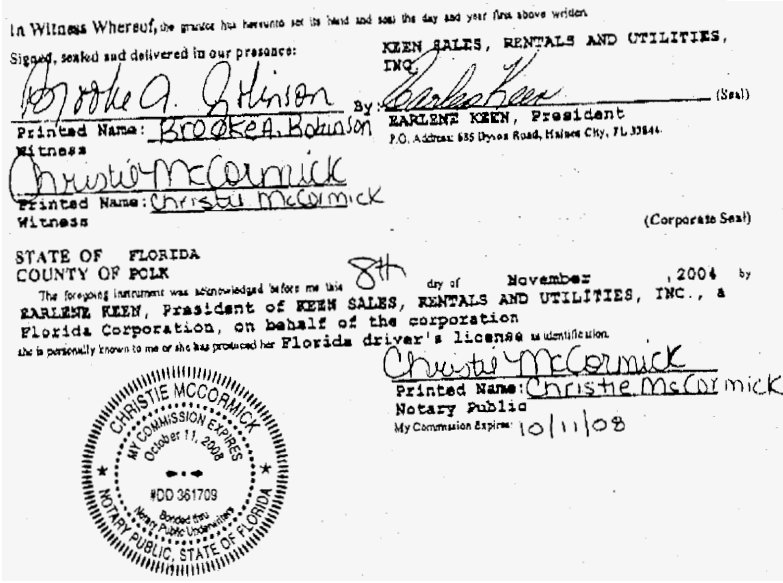 In Witness Whereof, the grantor has hereunto set its hand and seal the day and year first above written.
Signed, sealed and delivered in our presence:
KEEN SALES, RENTALS AND UTILITIES,
INC.
Brooke A. Robinson
By: Earlene Keen (Seal)
Printed Name: Brooke A. Robinson
Witness
EARLENE KEEN, President
P.O. Address: 685 Dyson Road, Haines City, FL 33844
Christie McCormick
Printed Name: Christie McCormick
Witness
(Corporate Seal)
STATE OF FLORIDA
COUNTY OF POLK
The foregoing instrument was acknowledged before me this 8th day of November, 2004 by
EARLENE KEEN, President of KEEN SALES, RENTALS AND UTILITIES, INC., a
Florida Corporation, on behalf of the corporation
she is personally known to me or she has produced her Florida driver's license as identification.
Christie McCormick
Printed Name: Christie McCormick
Notary Public
My Commission Expires: 10/11/08
CHRISTIE MCCORMICK
MY COMMISSION EXPIRES
October 11, 2008
#DD 361709
Bonded thru
Notary Public Underwriters
NOTARY PUBLIC, STATE OF FLORIDA